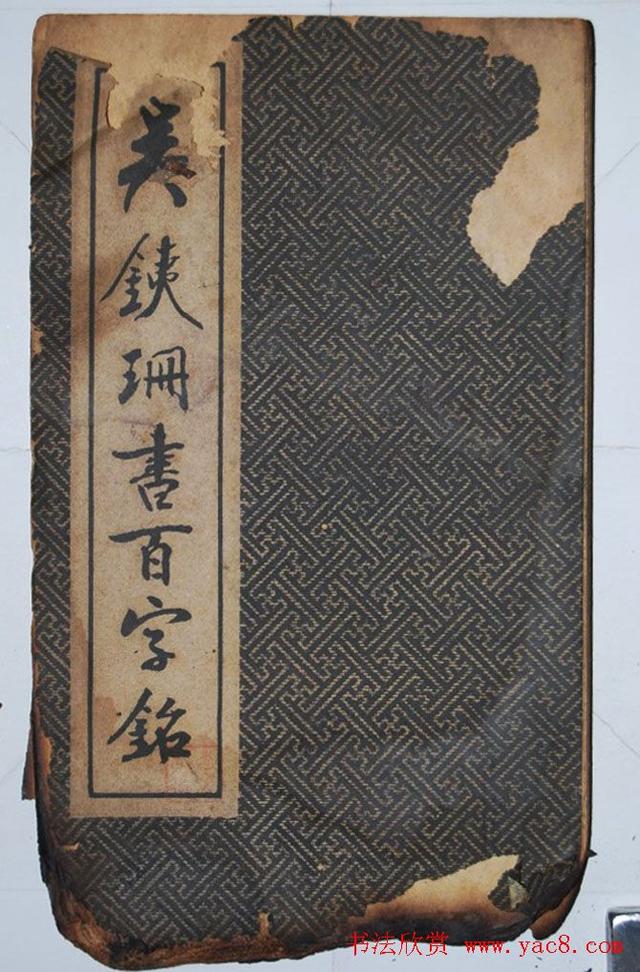 吴銕珊書百字銘
书法欣赏 www.yac8.com